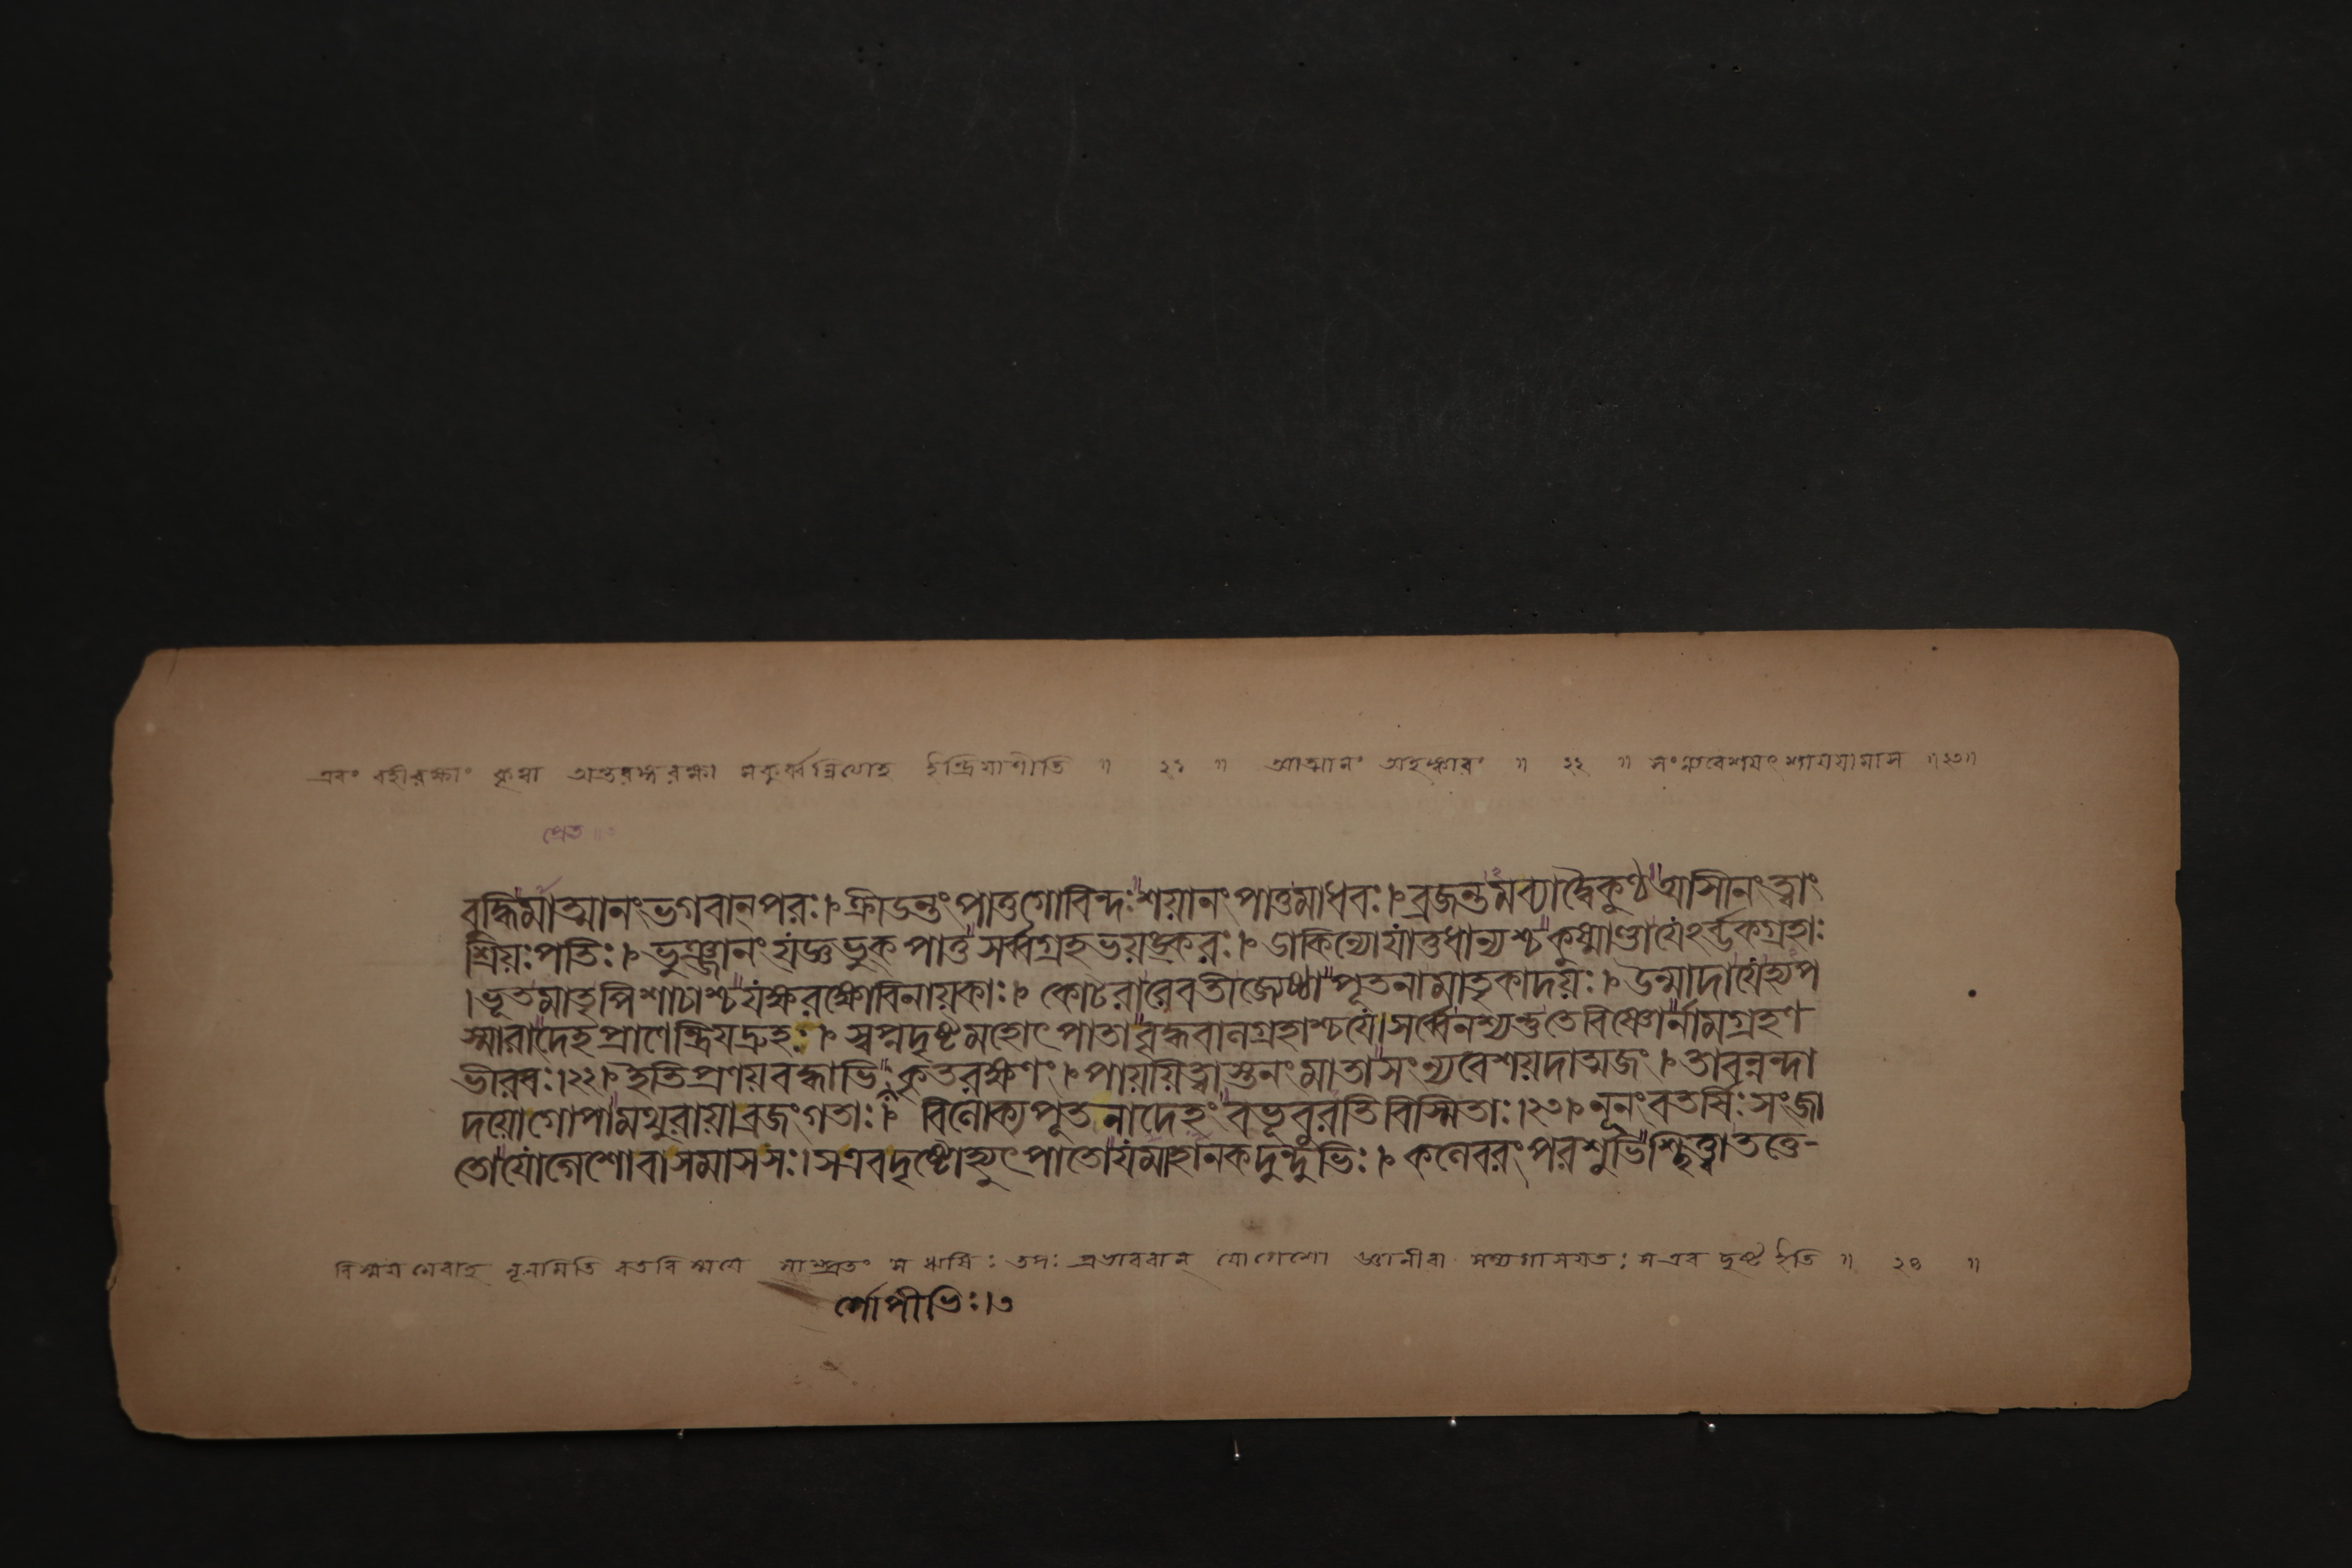 এবং বহীরক্ষাং কৃত্বা অন্তরঙ্গরক্ষা মকুর্ব্বন্নিত্যাহ ইন্দ্রিয়াণীতি ॥ ২১ ॥ আত্মানং অহঙ্কারং ॥ ২২ ॥ সংন্যবেশয়ৎ শায়য়ামাস ॥২৩॥
প্রেত ॥৩
বুদ্ধিমাত্মানংভগবানপরঃ।ক্রীডন্তংপাতুগোবিন্দঃশয়ানংপাতুমাধবঃ।ব্রজন্তমব্যাদ্বৈকুণ্ঠআসীনংত্বাং
শ্রিয়ঃপতিঃ।ভুঞ্জানংযজ্ঞভুকপাতুসর্ব্বগ্রহভয়ঙ্করঃ।ডাকিন্যোযাতুধান্যশ্চকুষ্মাণ্ডাযেঽর্ব্ভকগ্রহাঃ
।ভূতমাতৃপিশাচাশ্চযক্ষরক্ষোবিনায়কাঃ।কোটরারেবতীজ্যেষ্ঠাপূতনামাতৃকাদয়ঃ।উন্মাদাযেহ্যপ
স্মারাদেহপ্রাণেন্দ্রিয়দ্রুহঃ।স্বপ্নদৃষ্টমহোৎপাতাবৃদ্ধবালগ্রহাশ্চযে।সর্ব্বেনশ্যন্তুতেবিষ্ণোর্নামগ্রহণ
ভীরবঃ।২২।ইতিপ্রণয়বদ্ধাভিঃকৃতরক্ষণং।পায়য়িত্বাস্তনংমাতাসংন্যবেশয়দাত্মজং।তাবন্নন্দা
দয়োগোপামথুরায়াব্রজংগতাঃ।বিলোক্যপূতনাদেহংবভূবুরতিবিস্মিতাঃ।২৩।নূনংবতর্ষিঃসংজা
তোযোগেশোবাসমাসসঃ।সএবদৃষ্টোহ্যুৎপাতোযমাহানকদুন্দুভিঃ।কলেবরংপরশুভিশ্ছিত্ত্বাতত্তে-
বিস্ময়মেবাহ নূনমিতি বতবিস্ময়ে সাম্প্রতং স ঋষিঃ তপঃ প্রভাববান্ যোগেশো জ্ঞানীবা সম্যগাসয়তঃ সএব দৃষ্ট ইতি ॥ ২৪ ॥
র্গোপীভিঃ।৩